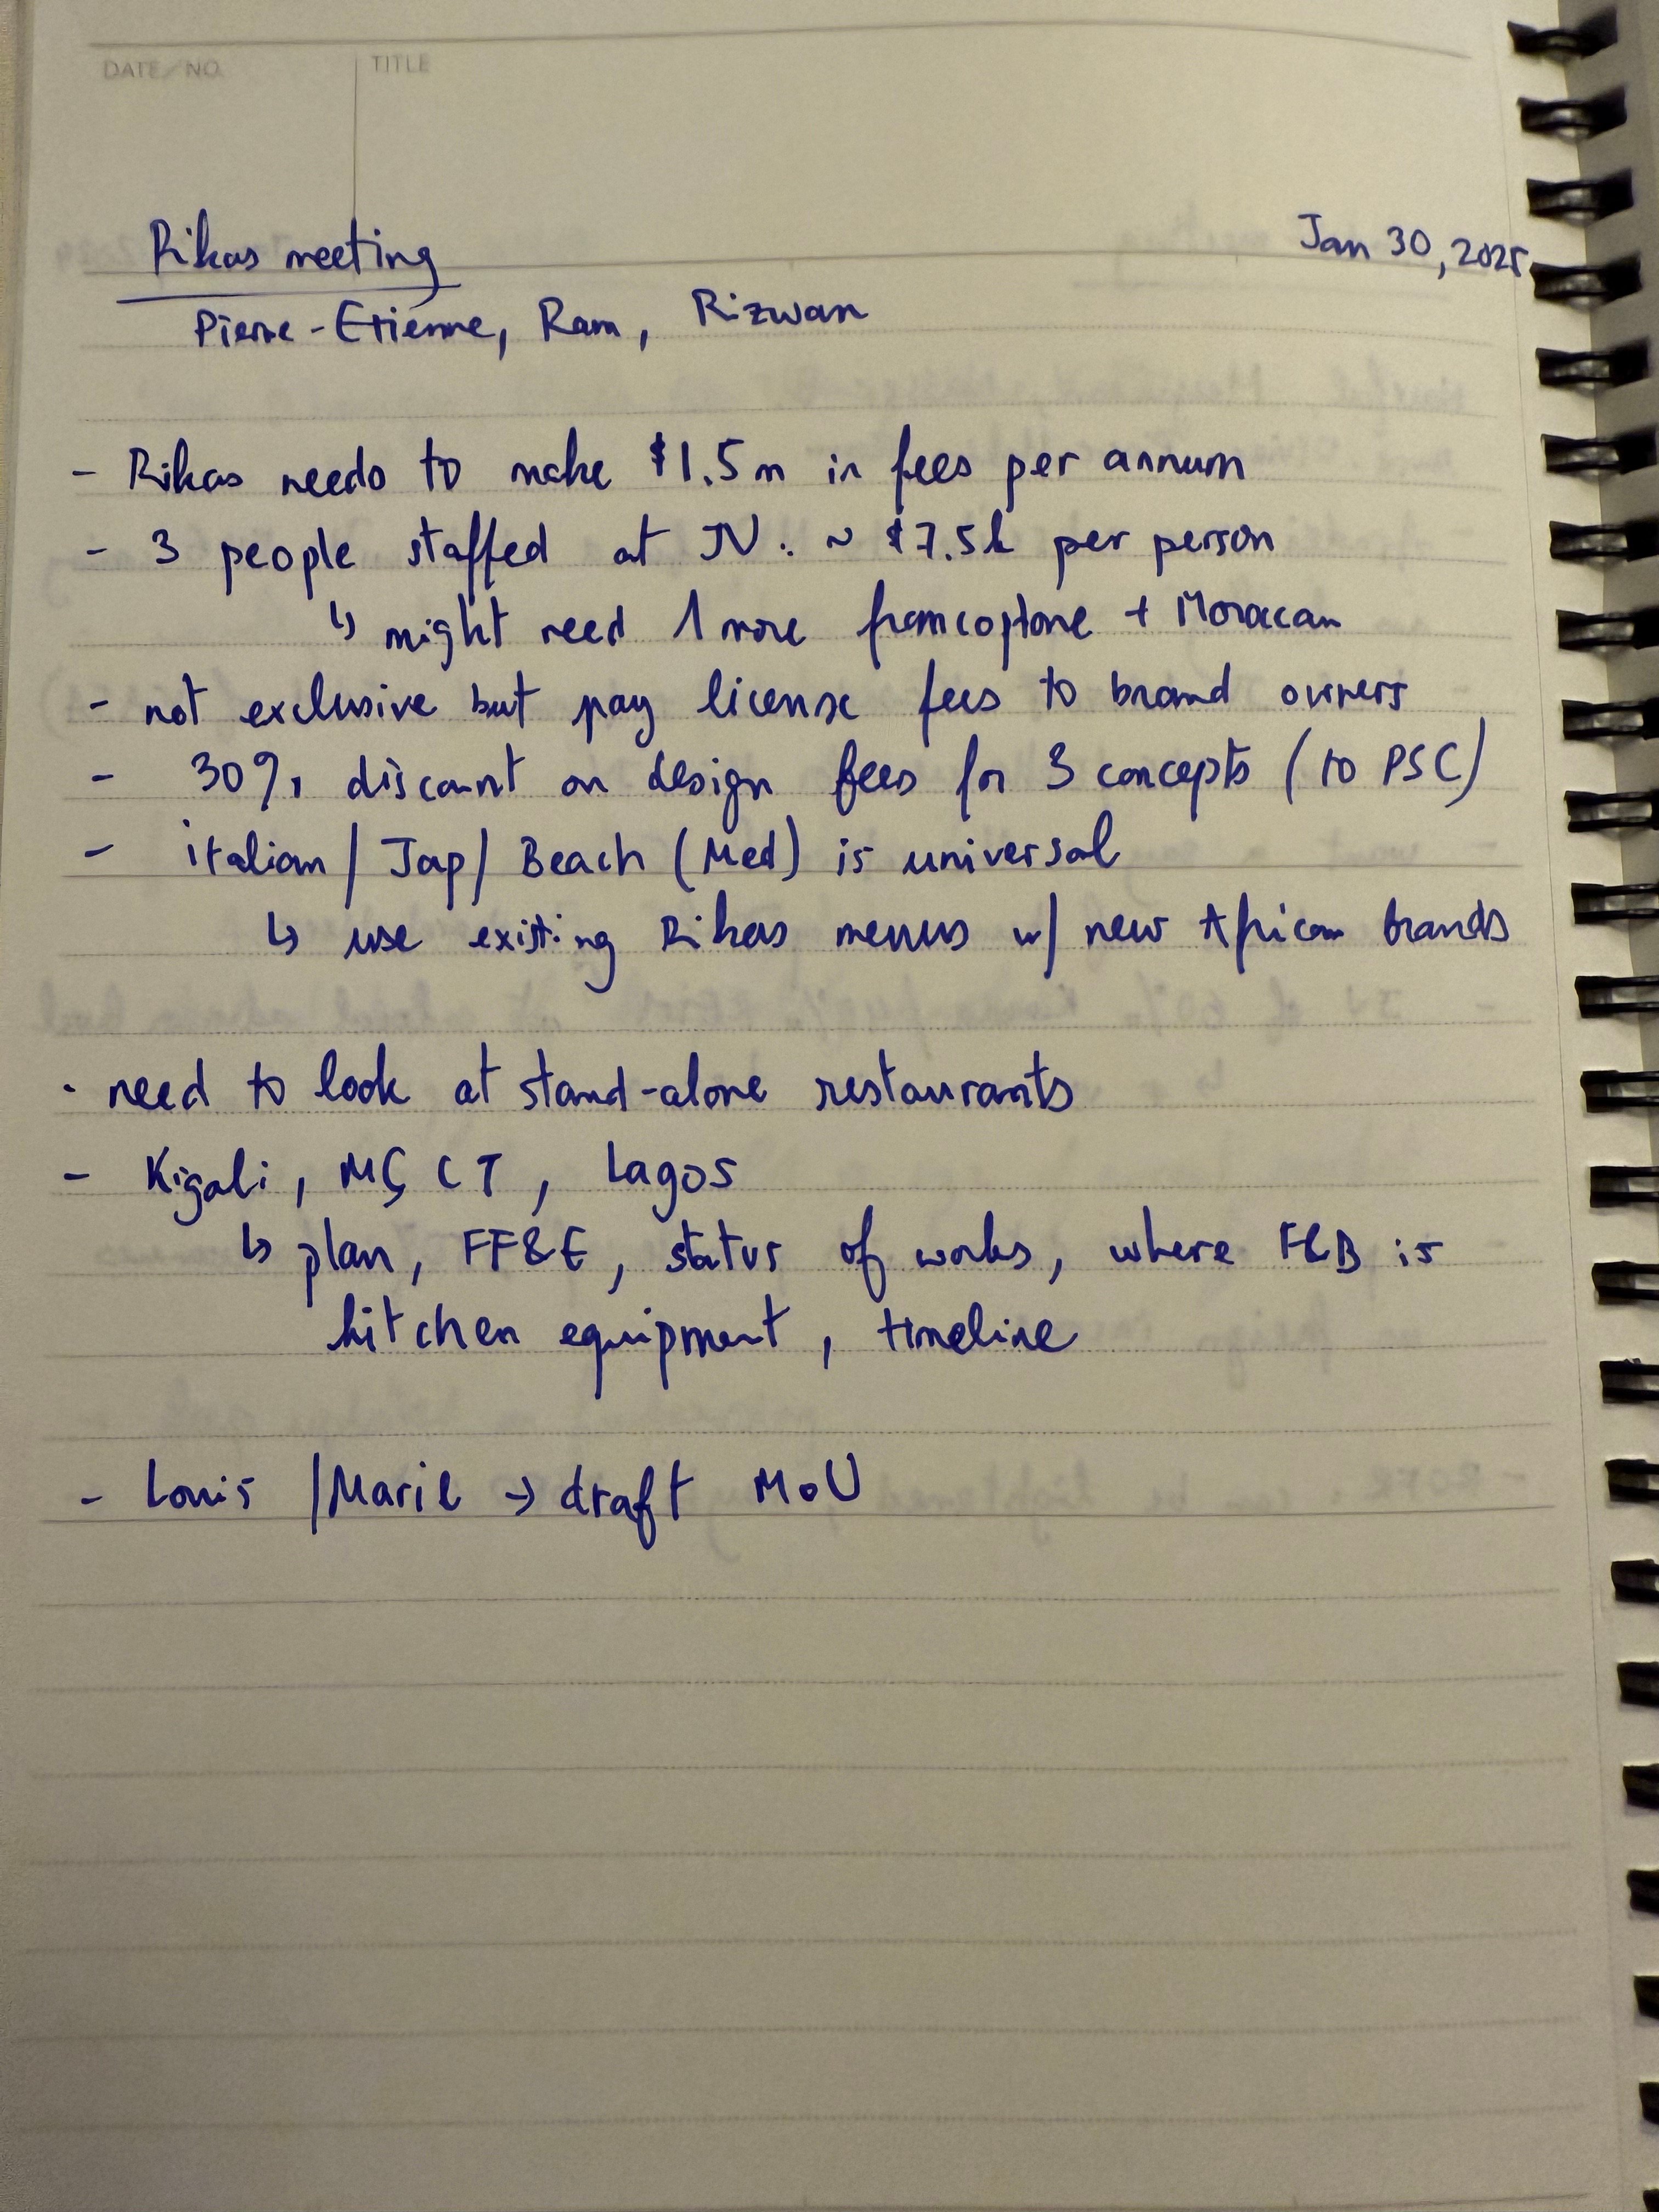 DATE/NO.
TITLE
Rikas meeting
Jan 30, 2025
Pierre-Etienne, Ram, Rizwan
- Rikas needs to make $1.5m in fees per annum
- 3 people staffed at JV. ~ $7.5k per person
↳ might need 1 more francophone + Moroccan
- not exclusive but pay license fees to brand owners
- 30% discount on design fees for 3 concepts (to PSC)
- italian / Jap / Beach (Med) is universal
↳ use existing Rikas menus w/ new African brands
- need to look at stand-alone restaurants
- Kigali, CT, Lagos
↳ plan, FF&E, status of works, where F&B is
kitchen equipment, timeline
- Louis / Marie → draft MoU